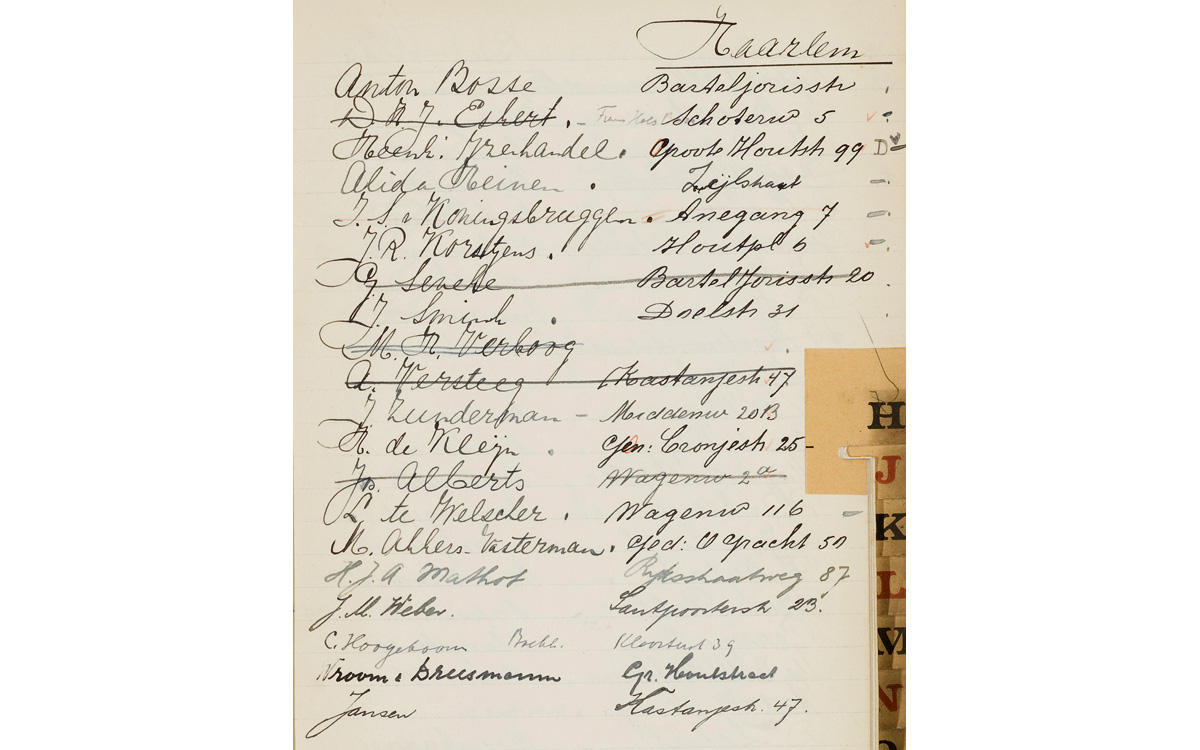 Haarlem
Anton Bosse Barteljorisstr
D. H. J. Eshert. - Schoterw 5
Heenk. IJzerhandel. Groote Houtstr 99 D
Alida Heinen . Zijlstraat
J. S. v Koningsbruggen. Anegang 7
J. R. Korstjens. Houtpl 6
Bartel Jorisstr 20
J. Smink . Doelstr 31
M. H. Verboog
A. Versteeg Kastanjestr 47
J Zunderman - Middenw 20B
H. de Kleijn . Gen: Cronjestr 25-
Js. Alberts Wagenw 2a
L te Welscher . Wagenw 116
M. Akkers-Vasterman. Ged: O Gracht 50
H. J. A Mathot Rijksstraatweg 87
J. M. Weber. Santpoorterstr 23.
C. Hoogeboom Boekh. Kloosterst 39
Vroom & Dreesmann Gr. Houtstraat
Jansen Kastanjestr. 47.
H
J
K
L
M
N
O